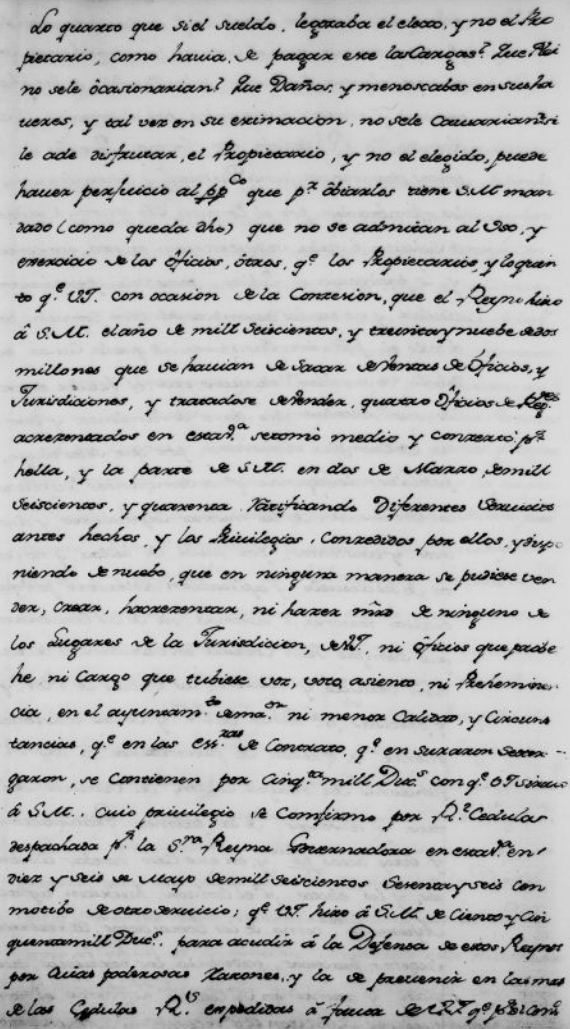 Lo quarto que si el sueldo, lograba el electo, y no el Pro
pietario, como havia de pagar este las Cargas? Que
no sele ôcasionarian? Que Daños, y menoscabos en sus ha
veres, y tal vez en su eximacion, no sele Causarian? si
le a de disfrutar, el Propietario, y no el elegido, puede
haver perjuicio al pp.co que p.r ôbiarlos tiene S.M. man
dado (como queda dho) que no se admitan al Uso, y
exercicio de los ôficios, ôtros, q.e los Propietarios, y lo quin
to q.e VI. con ocasion de la Conzesion, que el Reyno hizo
â S.M. el año de mill Seiscientos, y treinta y nuebe de dos
millones que se havian de Sacar de Ventas de ôficios, y
Jurisdiciones, y tratadose de vender, quatro ôficios de
acrezentados en esta V.a se tomo medio y conzerto, p.r
hella, y la parte de S.M. en dos de Marzo, de mill
Seiscientos, y quarenta Ratificando Diferentes Servicios
antes hechos, y los Privilegios, Conzedidos por ellos, y dispo
niendo de nuebo, que en ninguna manera se pudiese ven
der, Crear, hacrezentar, ni hazer mrd de ninguno de
los Lugares de la Jurisdicion, de VI, ni ôficios que probe
he, ni Cargo que tubiese voz, voto, asiento, ni Preheminen
cia, en el ayuntam.to de ma.or ni menor Calidad, y Circuns
tancias, q.e en las ess.ras de Contrato, q.e en su razon se otor
garon, se Contienen por Cinq.ta mill Duc.s con q.e VI sirvio
â S.M. cuio privilegio se Comfirmo por R.s Cedulas
despachada p.r la S.ra Reyna Governadora en esta V.a en
diez y seis de Mayo de mill Seiscientos Sesenta y seis con
motibo de otro servicio; q.e VI. hizo â S.M. de Ciento y Cin
quenta mill Duc.s para acudir â la Defensa de estos Reynos
por Cuias poderosas Razones, y la de prevenir en las mas
de las Cedulas R.s expedidas â favor de VI. q.e